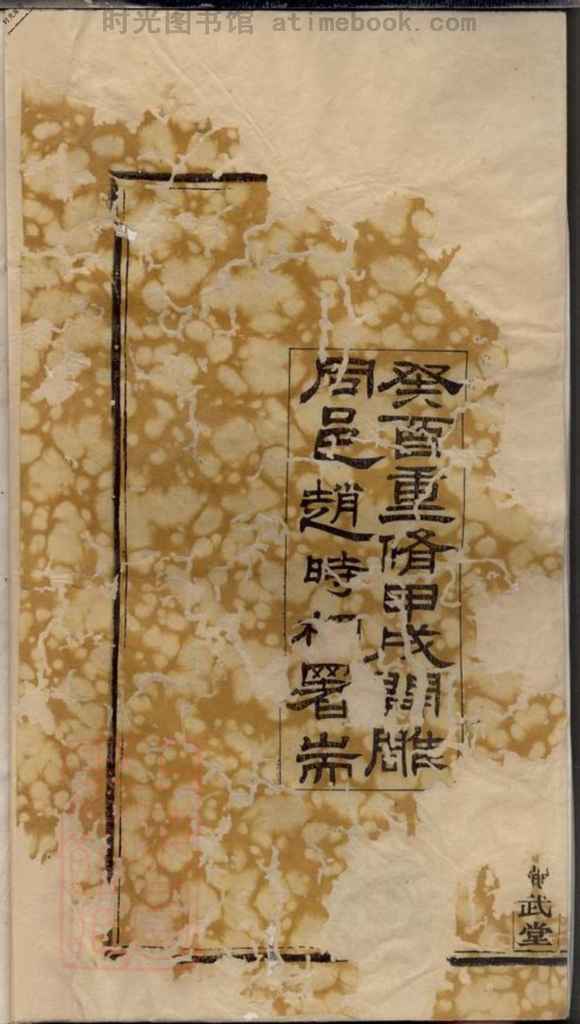 时光图书馆 atimebook.com
癸酉重脩甲戌開雕
同邑趙時棡署耑
武堂